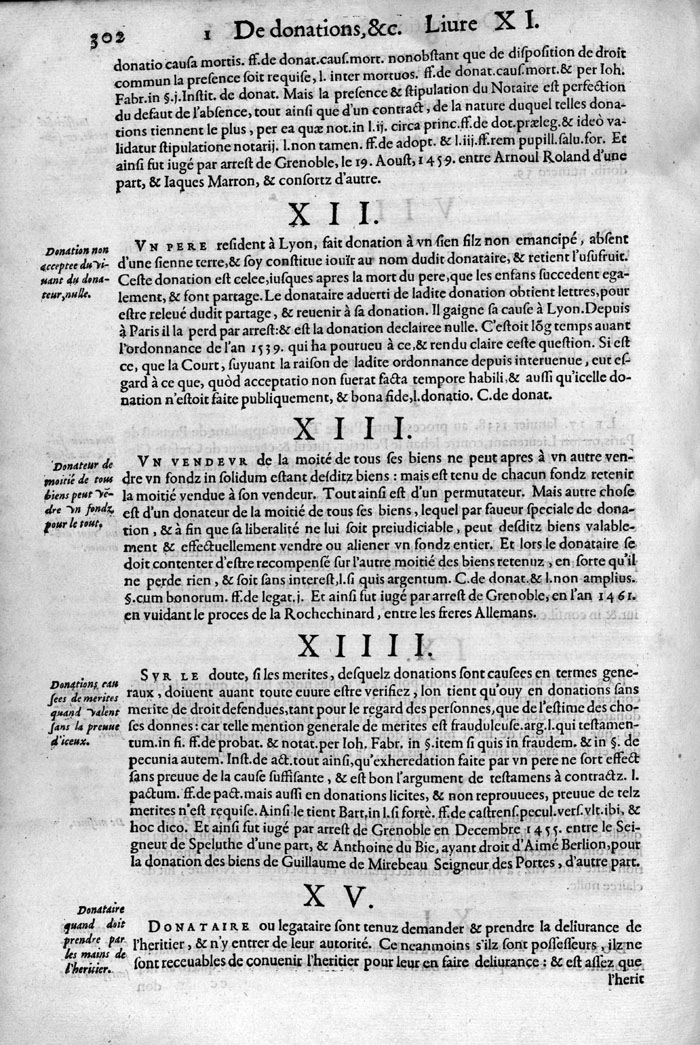 302 1 De donations, &c. Liure XI.
donatio causa mortis. ff. de donat. caus. mort. nonobstant que de disposition de droit
commun la presence soit requise, l. inter mortuos. ff. de donat. caus. mort. & per Ioh.
Fabr. in §. j. Instit. de donat. Mais la presence & stipulation du Notaire est perfection
du defaut de l'absence, tout ainsi que d'un contract, de la nature duquel telles dona-
tions tiennent le plus, per ea quæ not. in l. ij. circa princ. ff. de dot. præleg. & ideò va-
lidatur stipulatione notarij. l. non tamen. ff. de adopt. & l. iij. ff. rem pupill. salu. for. Et
ainsi fut iugé par arrest de Grenoble, le 19. Aoust, 1459. entre Arnoul Roland d'une
part, & Iaques Marron, & consortz d'autre.
XII.
Donation non
acceptee du vi-
uant du dona-
teur, nulle.
VN PERE resident à Lyon, fait donation à vn sien filz non emancipé, absent
d'une sienne terre, & soy constitue iouïr au nom dudit donataire, & retient l'usufruit.
Ceste donation est celee, iusques apres la mort du pere, que les enfans succedent ega-
lement, & font partage. Le donataire aduerti de ladite donation obtient lettres, pour
estre releué dudit partage, & reuenir à sa donation. Il gaigne sa cause à Lyon. Depuis
à Paris il la perd par arrest: & est la donation declairee nulle. C'estoit lõg temps auant
l'ordonnance de l'an 1539. qui ha pourueu à ce, & rendu claire ceste question. Si est
ce, que la Court, suyuant la raison de ladite ordonnance depuis interuenue, eut es-
gard à ce que, quòd acceptatio non fuerat facta tempore habili, & aussi qu'icelle do-
nation n'estoit faite publiquement, & bona fide, l. donatio. C. de donat.
XIII.
Donateur de
moitié de tous
biens peut vē-
dre vn fondz
pour le tout.
VN VENDEVR de la moité de tous ses biens ne peut apres à vn autre ven-
dre vn fondz in solidum estant desditz biens : mais est tenu de chacun fondz retenir
la moitié vendue à son vendeur. Tout ainsi est d'un permutateur. Mais autre chose
est d'un donateur de la moitié de tous ses biens, lequel par faueur speciale de dona-
tion, & à fin que sa liberalité ne lui soit preiudiciable, peut desditz biens valable-
ment & effectuellement vendre ou aliener vn fondz entier. Et lors le donataire se
doit contenter d'estre recompensé sur l'autre moitié des biens retenuz, en sorte qu'il
ne perde rien, & soit sans interest, l. si quis argentum. C. de donat. & l. non amplius.
§. cum bonorum. ff. de legat. j. Et ainsi fut iugé par arrest de Grenoble, en l'an 1461.
en vuidant le proces de la Rochechinard, entre les freres Allemans.
XIIII.
Donations cau
sees de merites
quand valent
sans la preuue
d'iceux.
SVR LE doute, si les merites, desquelz donations sont causees en termes gene-
raux, doiuent auant toute euure estre verifiez, lon tient qu'ouy en donations sans
merite de droit defendues, tant pour le regard des personnes, que de l'estime des cho-
ses donnes: car telle mention generale de merites est frauduleuse. arg. l. qui testamen-
tum. in fi. ff. de probat. & notat. per Ioh. Fabr. in §. item si quis in fraudem. & in §. de
pecunia autem. Inst. de act. tout ainsi, qu'exheredation faite par vn pere ne sort effect
sans preuue de la cause suffisante, & est bon l'argument de testamens à contractz. l.
pactum. ff. de pact. mais aussi en donations licites, & non reprouuees, preuue de telz
merites n'est requise. Ainsi le tient Bart, in l. si fortè. ff. de castrens. pecul. vers. vlt. ibi, &
hoc dico. Et ainsi fut iugé par arrest de Grenoble en Decembre 1455. entre le Sei-
gneur de Speluthe d'une part, & Anthoine du Bie, ayant droit d'Aimé Berlion, pour
la donation des biens de Guillaume de Mirebeau Seigneur des Portes, d'autre part.
XV.
Donataire
quand doit
prendre par
les mains de
l'heritier.
DONATAIRE ou legataire sont tenuz demander & prendre la deliurance de
l'heritier, & n'y entrer de leur autorité. Ce neanmoins s'ilz sont possesseurs, ilz ne
sont receuables de conuenir l'heritier pour leur en faire deliurance : & est assez que
l'herit